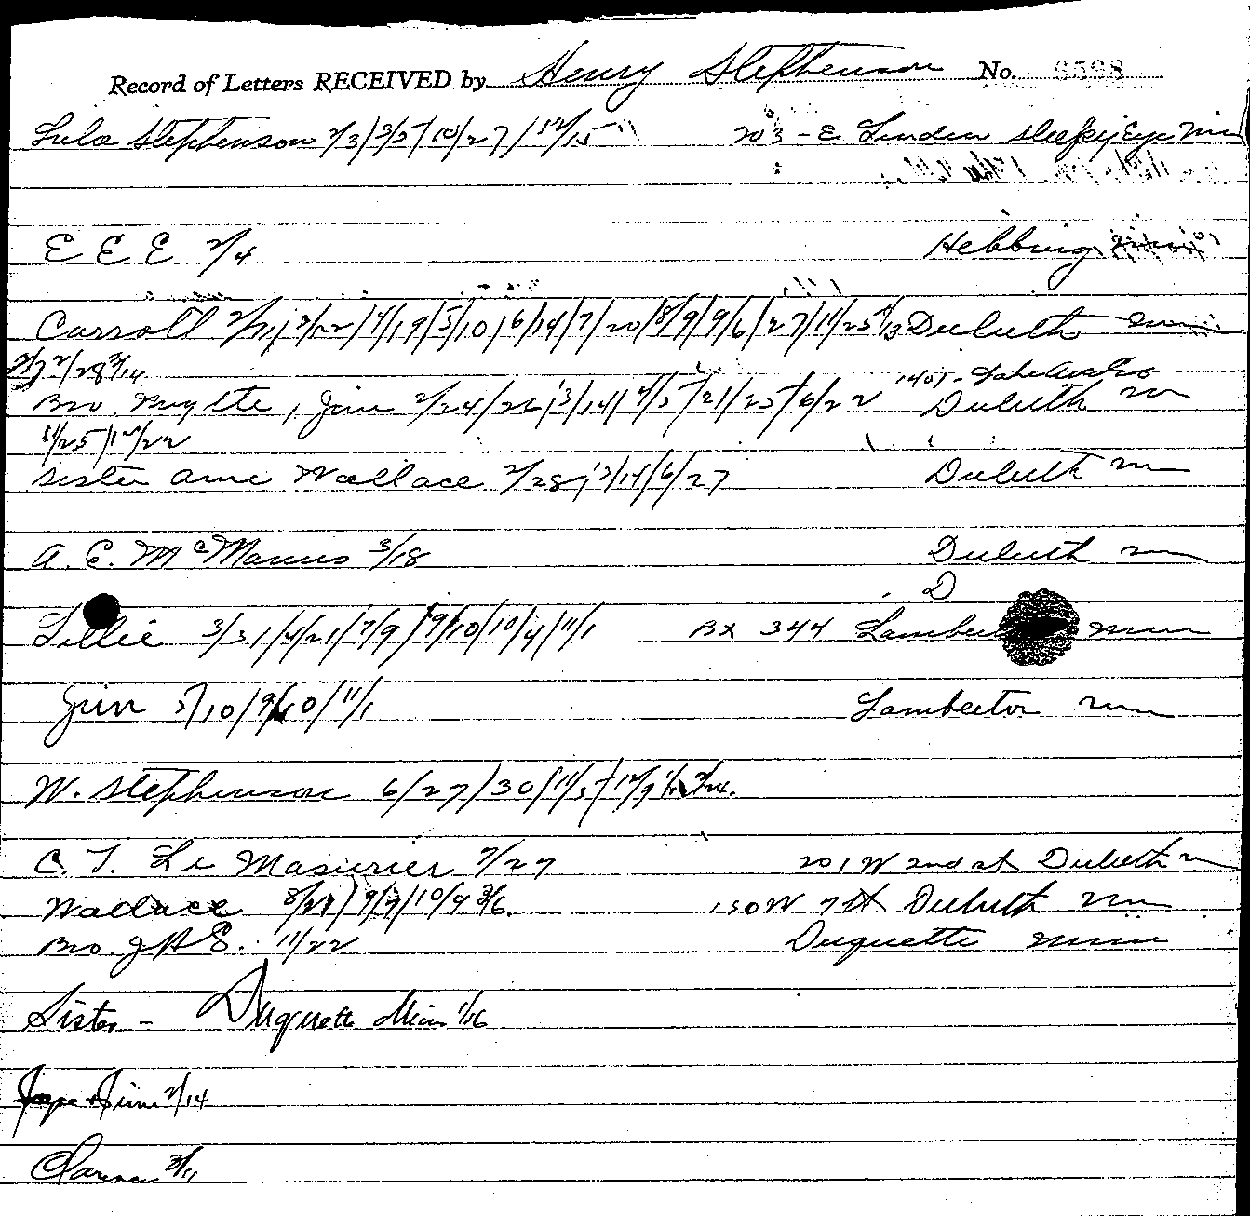 Record of Letters RECEIVED by Henry Stephenson No. 6598
Lula Stephenson 2/3/3/27/10/27/12/15 203 - E Linden Sleepy Eye Minn
E E E 2/4 Hebbing
Carroll 3/22/4/19/5/10/6/14/7/20/8/9/9/6/27/11/25 Duluth Minn
2/28 3/14 1401 - Lake Ave So
Bro. Jim 2/24/26/3/14/4/5/21/25/6/22 Duluth Mn
11/25/12/22
Sister Wallace 2/28/3/14/6/27 Duluth Mn
A. E. McManus 3/18 Duluth Mn
D
Lillie 3/31/4/21/7/9/9/10/10/4/11/1 Bx 344 Minn
Jim 5/10/9/10/11/1 Lamberton Mn
W. Stephenson 6/27/30/11/5/12/9
C. T. Le Masurier 7/27 201 W 2nd st Duluth M
Wallace 8/27/9/7/10/9 3/6. 130 W 7th Duluth Mn
Bro. J H E. 11/22 Duquette Minn
Sister - Duquette Minn 1/16
Jim 2/14
Clarence 3/11